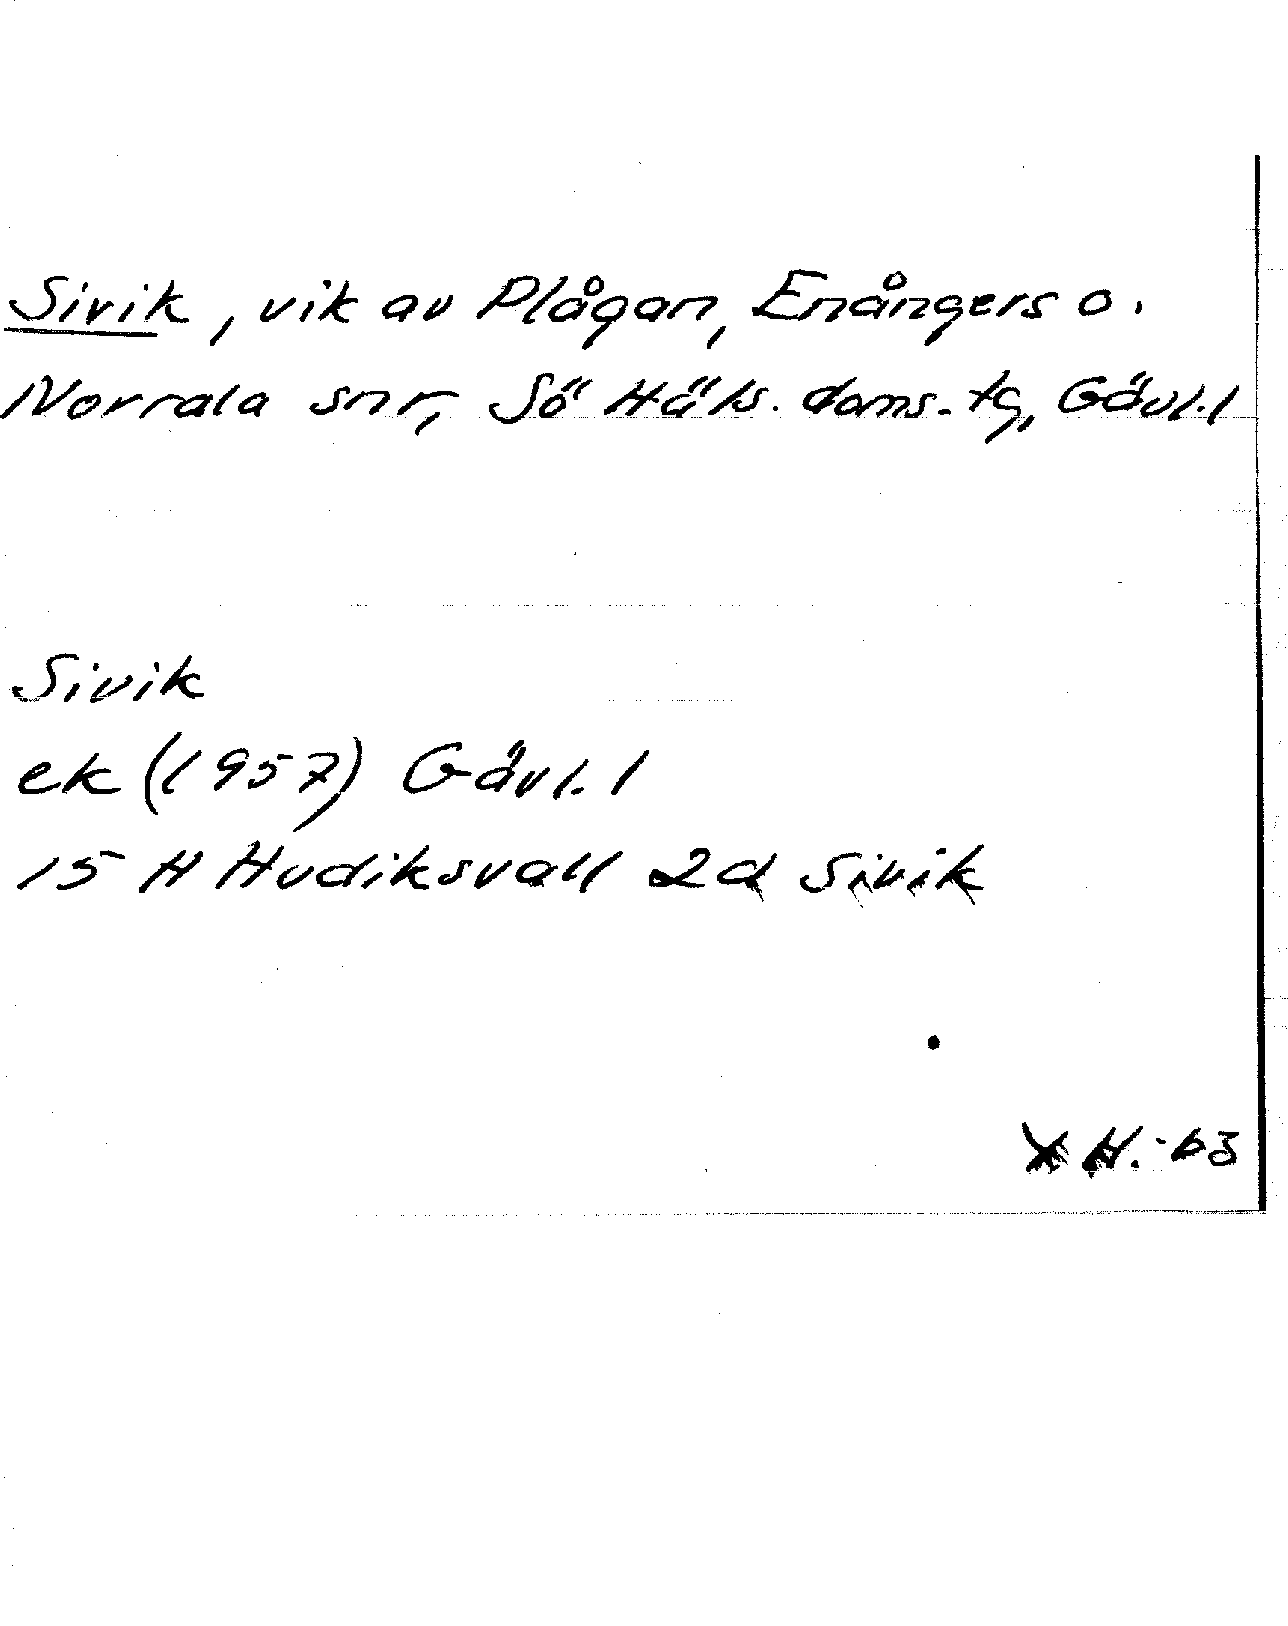 Sivik, vik av Plågan, Enångers o.
Norrala snr, Sö Häls. doms. tg, Gävl. l
Sivik
ek (1957) Gävl. l
15 H Hudiksvall 2d Sivik
H. -63